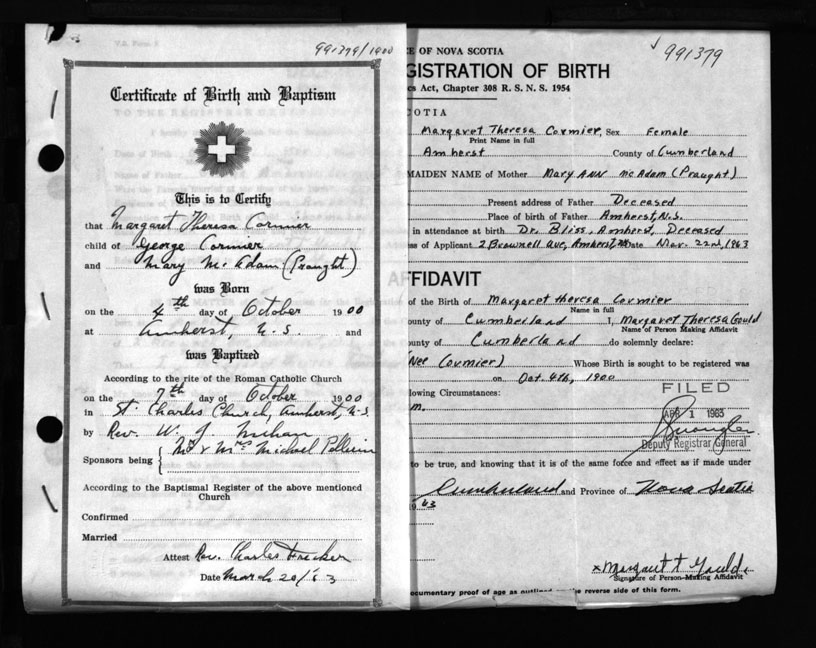 991379/1900
Certificate of Birth and Baptism
This is to Certify
that Margaret Theresa Cormier
child of George Cormier
and Mary McAdam (Praught)
was Born
on the 4th day of October 1900
at Amherst, N.S. and
was Baptized
According to the rite of the Roman Catholic Church
on the 7th day of October 1900
in St. Charles Church, Amherst, N.S.
by Rev. W. J. Mihan
Sponsors being { Mr & Mrs Michael Pellerin
According to the Baptismal Register of the above mentioned
Church
Confirmed
Married
Attest Rev. Charles Fricker
Date March 20/63
991379
CE OF NOVA SCOTIA
GISTRATION OF BIRTH
cs Act, Chapter 308 R. S. N. S. 1954
COTIA
Margaret Theresa Cormier, Sex Female
Print Name in full
Amherst County of Cumberland
MAIDEN NAME of Mother Mary Ann McAdam (Praught)
Present address of Father Deceased
Place of birth of Father Amherst, N.S.
in attendance at birth Dr. Bliss, Amherst, Deceased
ss of Applicant 2 Brownell Ave, Amherst, NS Date Mar. 22nd, 1963
AFFIDAVIT
of the Birth of Margaret theresa Cormier
Name in full
ounty of Cumberland I, Margaret Theresa Gould
Name of Person Making Affidavit
ounty of Cumberland do solemnly declare:
(Nee Cormier) Whose Birth is sought to be registered was
on Oct. 4th, 1900
lowing Circumstances:
m.
FILED
APR 1 1963
Deputy Registrar General
to be true, and knowing that it is of the same force and effect as if made under
Cumberland and Province of Nova Scotia
1963
x Margaret T Gould
Signature of Person Making Affidavit
ocumentary proof of age as outlined on the reverse side of this form.